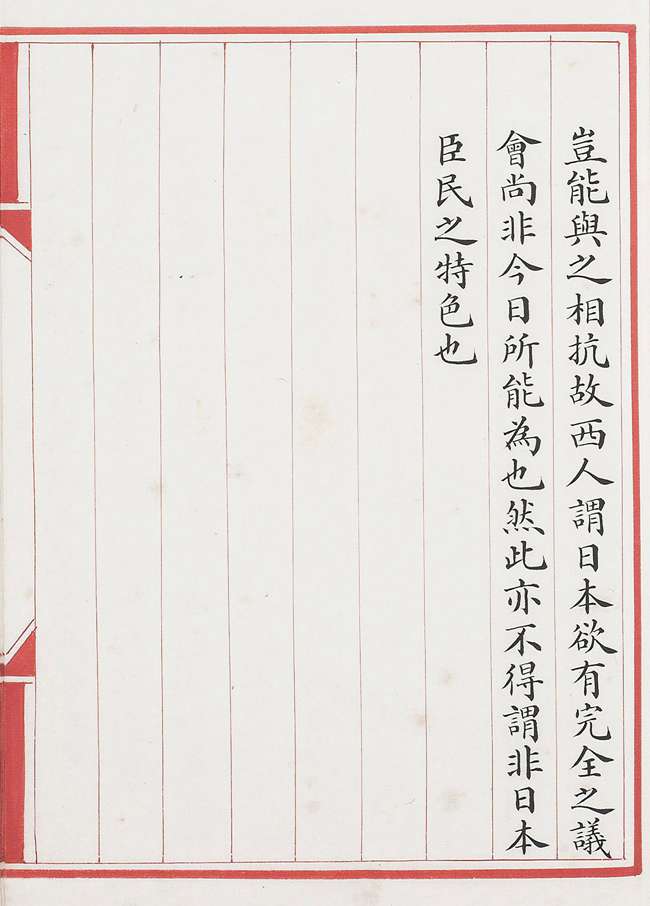 豈能與之相抗故西人謂日本欲有完全之議
會尚非今日所能為也然此亦不得謂非日本
臣民之特色也